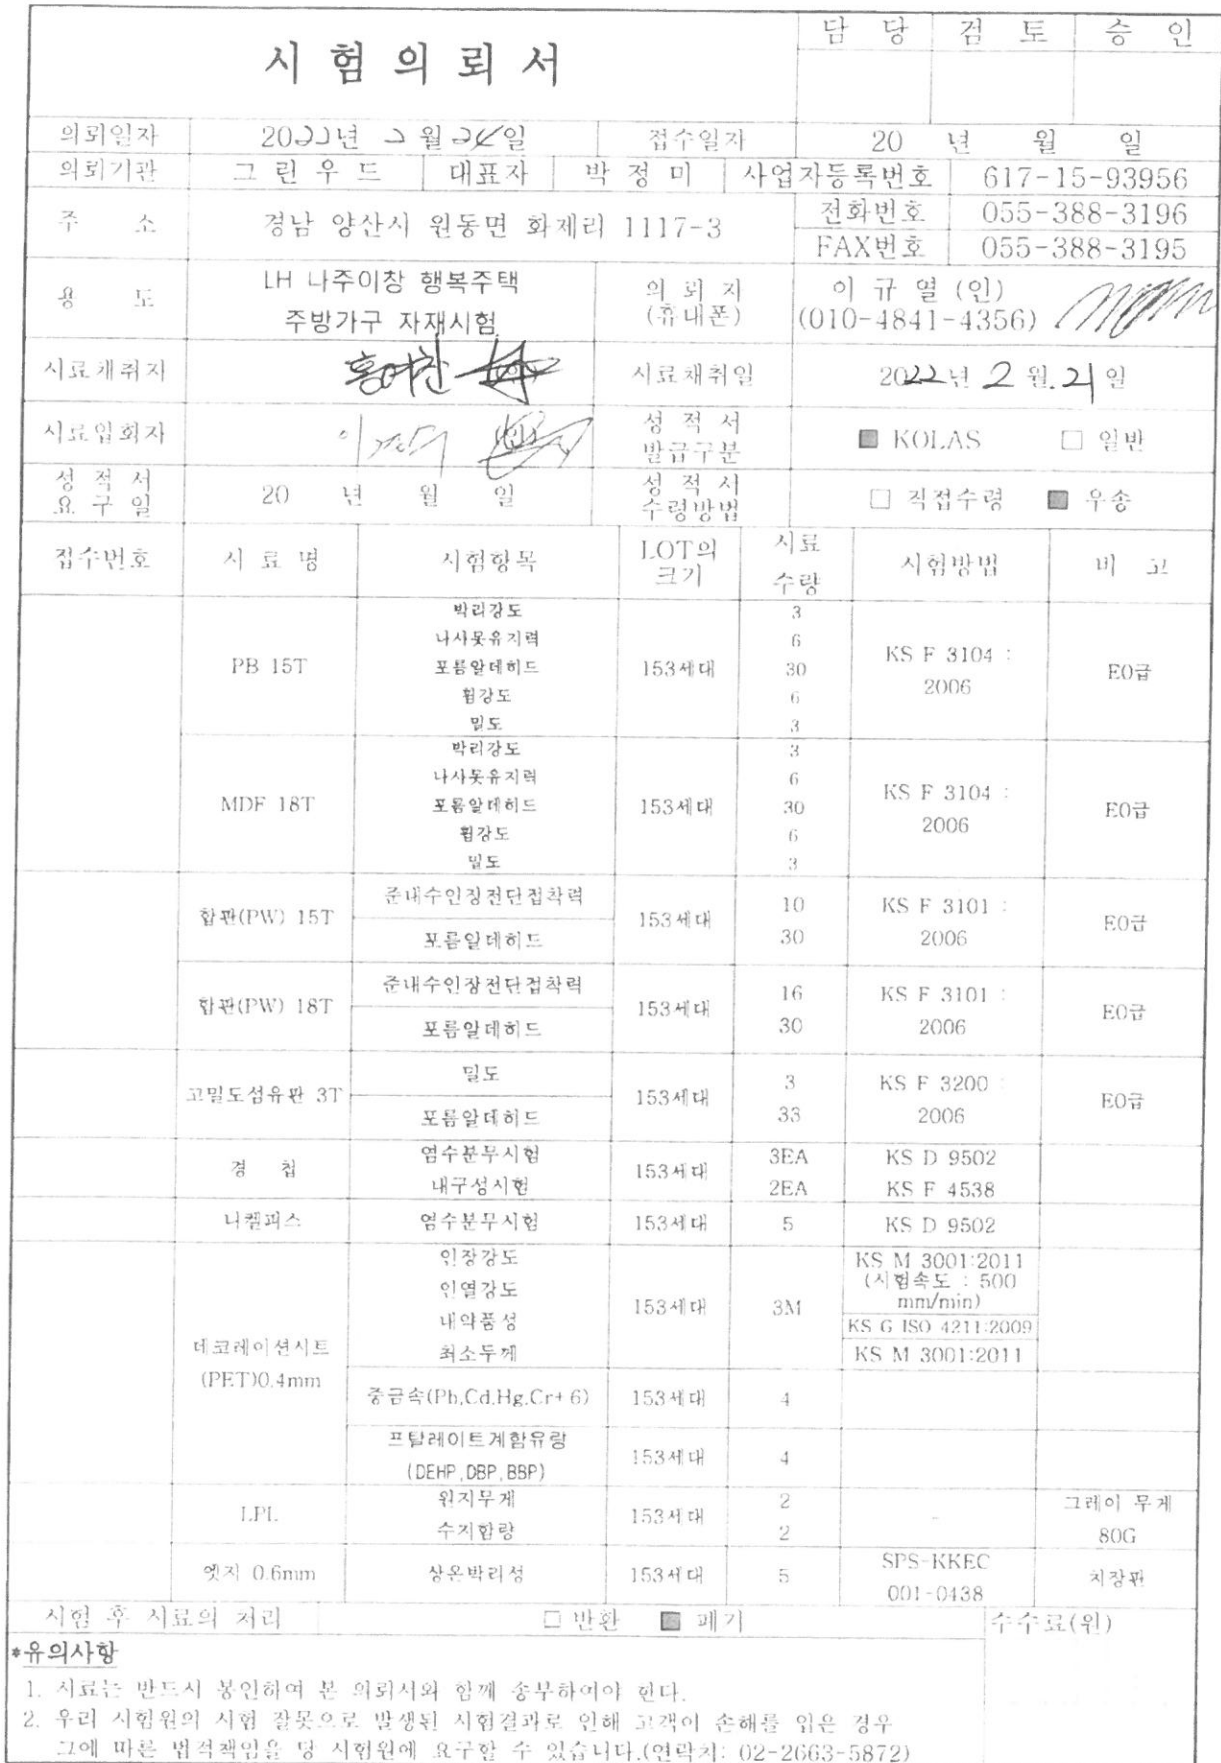 시 험 의 뢰 서
담 당 검 토 승 인
의뢰일자 2022년 2 월 일 접수일자 20 년 월 일
의뢰기관 그 린 우 드 대표자 박 정 미 사업자등록번호 617-15-93956
주 소 경남 양산시 원동면 화제리 1117-3
전화번호 055-388-3196
FAX번호 055-388-3195
용 도 LH 나주이창 행복주택
주방가구 자재시험
의 뢰 자
(휴대폰)
이 규 열 (인)
(010-4841-4356)
시료채취자 (인) 시료채취일 2022년 2 월 21일
시료입회자 (인)
성 적 서
발급구분
■ KOLAS □ 일반
성 적 서
요 구 일
20 년 월 일
성 적 서
수령방법
□ 직접수령 ■ 우송
접수번호 시 료 명 시험항목 LOT의
크기
시료
수량
시험방법 비 고
PB 15T
박리강도 3
나사못유지력 6
포름알데히드 30
휨강도 6
밀도 3
153세대
KS F 3104 :
2006
E0급
MDF 18T
박리강도 3
나사못유지력 6
포름알데히드 30
휨강도 6
밀도 3
153세대
KS F 3104 :
2006
E0급
합판(PW) 15T
준내수인장전단접착력 10
포름알데히드 30
153세대
KS F 3101 :
2006
E0급
합판(PW) 18T
준내수인장전단접착력 16
포름알데히드 30
153세대
KS F 3101 :
2006
E0급
고밀도섬유판 3T
밀도 3
포름알데히드 33
153세대
KS F 3200 :
2006
E0급
경 첩
염수분무시험 3EA KS D 9502
내구성시험 2EA KS F 4538
153세대
니켈피스 염수분무시험 153세대 5 KS D 9502
데코레이션시트
(PET)0.4mm
인장강도
인열강도
내약품성
최소두께
153세대 3M
KS M 3001:2011
(시험속도 : 500
mm/min)
KS G ISO 4211:2009
KS M 3001:2011
중금속(Pb,Cd.Hg.Cr+ 6) 153세대 4
프탈레이트계함유량
(DEHP,DBP,BBP)
153세대 4
LPL
원지무게 2
수지함량 2
153세대 -
그레이 무게
80G
엣지 0.6mm 상온박리성 153세대 5
SPS-KKEC
001-0438
치장판
시험 후 시료의 처리 □ 반환 ■ 폐기 수수료(원)
*유의사항
1. 시료는 반드시 봉인하여 본 의뢰서와 함께 송부하여야 한다.
2. 우리 시험원의 시험 잘못으로 발생된 시험결과로 인해 고객이 손해를 입은 경우
그에 따른 법적책임을 당 시험원에 요구할 수 있습니다.(연락처: 02-2663-5872)